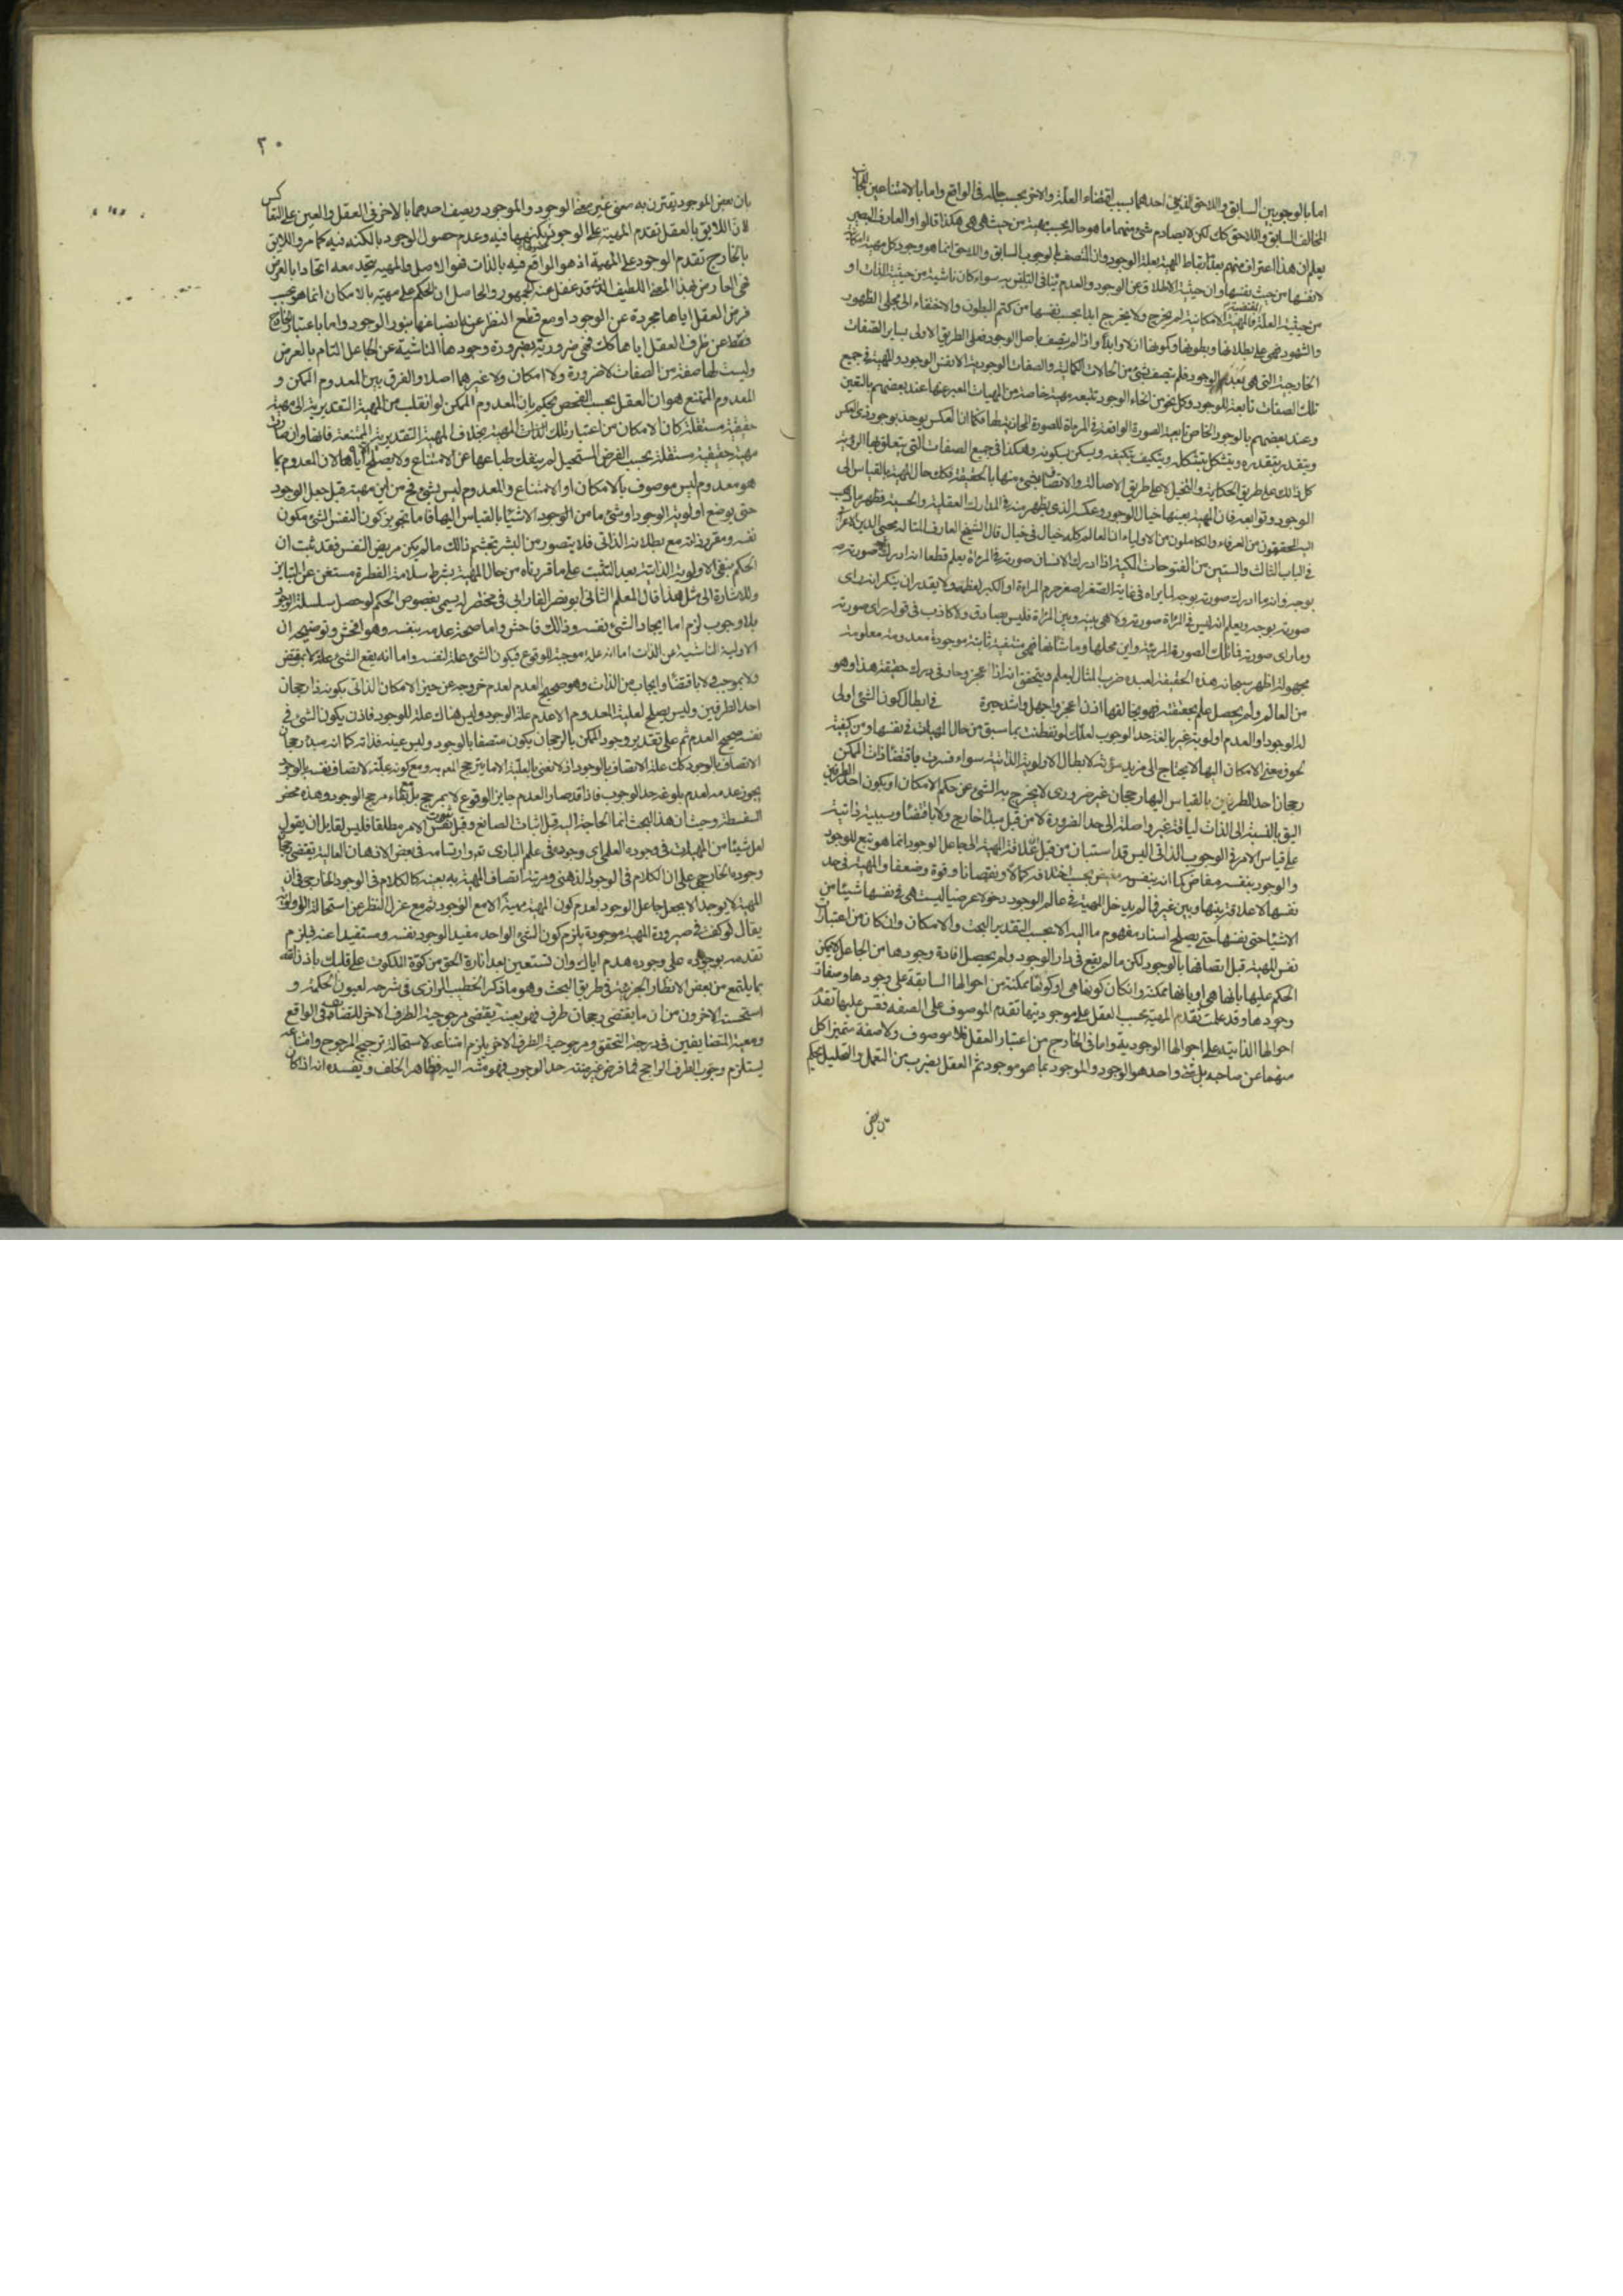 اما بالوجوبين السابق واللاحق الذين احدهما بسبب اقتضاء العلة والاخر بحسب حاله في الواقع واما بالامتناعين
المخالف السابق واللاحق كك لكن لا يصادم شئ منهما ما هو حاله بحسب مهيته من حيث هي هي هكذا قالوا والعارف البصير
يعلم ان هذا اعتراف منهم بعدم ارتباط المهية بعلة الوجود وان المتصف بالوجوب السابق واللاحق انما هو وجود كل مهية امكانية
لا نفسها من حيث نفسها وان حيثية الاطلاق عن الوجود والعدم ينافي التلبس به سواء كان ناشئة من حيثية الذات او
من حيثية العلة المقتضية فالمهية الامكانية لم يخرج ولا يخرج ابدا بحسب نفسها من كتم البطون والاختفاء الى مجلى الظهور
والشهود فهي على بطلانها وبطونها وكونها ازلا وابدا واذا لم يتصف باصل الوجود فعلى الطريق الاولى بساير الصفات
الخارجية التي هي بعد الوجود فلم يتصف بشئ من الحالات الكمالية والصفات الوجودية الا نفس الوجود والمهية في جميع
تلك الصفات تابعة للوجود وكل نحو من انحاء الوجود تتبعه مهية خاصة من المهيات المعبر عنها عند بعضهم بالتعين
وعند بعضهم بالوجود الخاص تابعية الصورة الواقعة في المرءاة للصورة المحاذية لها فكما ان العكس يوجد بوجود ذى العكس
ويتقدر بتقدره ويتشكل بتشكله ويتكيف بتكيفه ويسكن بسكونه وهكذا في جميع الصفات التي يتعلق بها الرؤية
كل ذلك على طريق الحكاية والتخيل لا على طريق الاصالة والاتصاف بشئ منها بالحقيقة فكك حال المهية بالقياس الى
الوجود وتوابعه فان المهية بعينها خيال الوجود وعكسه الذى يظهر منه في المدارك العقلية والحسية فظهر ما ذهب
اليه المحققون من العرفاء والكاملون من الاولياء ان العالم كله خيال في خيال قال الشيخ العارف المتاله محيي الدين الاعرابي
في الباب الثالث والستين من الفتوحات المكية اذا ادرك الانسان صورته في المرءاة يعلم قطعا انه ادرك صورته
بوجه وانه ما ادرك صورته بوجه لما يراه في غاية الصغر لصغر جرم المرءاة او الكبر لعظمه ولا يقدر ان ينكر انه راى
صورته بوجه ويعلم انه ليس في المرءاة صورته ولا هي بينه وبين المرءاة فليس بصادق ولا كاذب في قوله راى صورته
وما راى صورته فما تلك الصورة المرئية واين محلها وما شانها فهي منتفية ثابتة موجودة معدومة معلومة
مجهولة اظهر سبحانه هذه الحقيقة لعبده ضرب المثال ليعلم ويتحقق انه اذا عجز وحار في درك حقيقة هذا وهو
من العالم ولم يحصل علم بحقيقته فهو بخالقها اذن اعجز واجهل واشد حيرة في ابطال كون الشئ اولى
له الوجود او العدم اولوية غير بالغة حد الوجوب لعلك لو تفطنت بما سبق من حال المهيات في نفسها ومن كيفية
لحوق معنى الامكان اليها لا تحتاج الى مزيد مؤنة لابطال الاولوية الذاتية سواء فسرت باقتضاء ذات الممكن
رجحان احد الطرفين بالقياس اليها رجحان غير ضرورى لا يخرج به الشئ عن حكم الامكان او بكون احد الطرفين
اليق بالنسبة الى الذات لياقة غير واصلة الى حد الضرورة لا من قبل مبدأ خارج ولا باقتضاء وسببية ذاتية
على قياس الامر في الوجوب الذاتي اليس قد استبان من قبل ان علاقة المهية الى جاعل الوجود انما هو بتبع للوجود
والوجود بنفسه مفاض كما انه بنفسه مفيض بحسب اختلافه كمالا ونقصانا وقوة وضعفا والمهية في حد
نفسها لا علاقة بينها وبين غيرها فما لم يدخل المهية في عالم الوجود دخولا عرضيا ليست هي في نفسها شيئا من
الاشياء حتى نفسها حتى يصلح اسناد مفهوم ما اليه الا بحسب التقدير البحت والامكان وان كان من اعتبارات
نفس المهية قبل اتصافها بالوجود لكن ما لم يقع في دار الوجود ولم يحصل افادة وجودها من الجاعل لا يمكن
الحكم عليها بانها هي او بانها ممكنة وان كان كونها هي او كونها ممكنة من احوالها السابقة على وجودها وصفات
وجودها وقد علمت تقدم المهية بحسب العقل على موجوديتها تقدم الموصوف على الصفة فقس عليها تقدم
احوالها الذاتية على احوالها الوجودية واما في الخارج من اعتبار العقل فلا موصوف ولا صفة متميزا كل
منهما عن صاحبه بل شئ واحد هو الوجود والموجود بما هو موجود ثم العقل بضرب من التعمل والتحليل يحكم
بان بعض
٢٠
بان بعض الموجود يقترن به معنى غير معنى الوجود والموجود ويصف احدهما بالاخر في العقل والعين على التعاكس
لان اللايق بالعقل تقدم المهية على الوجود لحصولها بكنهها فيه وعدم حصول الوجود بالكنه فيه كما مر واللايق
بالخارج تقدم الوجود على المهية اذ هو الواقع فيه بالذات فهو الاصل والمهية يتحد معه اتحادا بالعرض
فهي العارض بهذا المعنى اللطيف الذى قد غفل عنه الجمهور والحاصل ان الحكم على مهية بالامكان انما هو بحسب
فرض العقل اياها مجردة عن الوجود او مع قطع النظر عن انصباغها بنور الوجود واما باعتبار الخارج
فقط عن ظرف العقل اياها كك فهي ضرورية بضرورة وجودها الناشية عن الجاعل التام بالعرض
وليست لها صفة من الصفات لا ضرورة ولا امكان ولا غيرهما اصلا والفرق بين المعدوم الممكن و
المعدوم الممتنع هو ان العقل بحسب الفحص يحكم بان المعدوم الممكن لو انقلب من المهية التقديرية الى مهية
حقيقية مستقلة كان الامكان من اعتبار تلك الذات المهية بخلاف المهية التقديرية الممتنعة فانها وان صارت
مهية حقيقية مستقلة بحسب الفرض المستحيل لم ينفك طباعها عن الامتناع ولا يصلح الا اياها لان المعدوم بما
هو معدوم ليس موصوف بالامكان او الامتناع والمعدوم ليس بشئ فمن اين مهية قبل جعل الوجود
حتى يوضع اولوية الوجود او شئ ما من الوجود الاشياء بالقياس اليها فاما تجويز كون النفس الشئ مكون
نفسه ومقرر ذاته مع بطلانه الذاتي فلا يتصور من البشر تجشم ذلك ما لم يكن مريض النفس فقد ثبت ان
الحكم بنفي الاولوية الذاتية بعد التثبت على ما قررناه من حال المهية بشرط سلامة الفطرة مستغن عن البيان
وللاشارة الى مثل هذا قال المعلم الثاني ابو نصر الفارابي في مختصر له يسمى بفصوص الحكم لو حصل سلسلة الوجود
بلا وجوب لزم اما ايجاد الشئ نفسه وذلك فاحش واما صحة عدمه بنفسه وهو افحش وتوضيحه ان
الاولية الناشية عن الذات اما انه علة موجبة للوقوع فيكون الشئ علة لنفسه واما انه يقع الشئ علة لا بمقتض
ولا بموجب ولا باقتضاء وايجاب من الذات وهو صحيح العدم لعدم خروجه عن حيز الامكان الذاتي بكونه ذا رجحان
احد الطرفين وليس يصلح لعلية العدم الا عدم علة الوجود وليس هناك علة للوجود فاذن يكون الشئ في
نفسه صحيح العدم ثم على تقدير وجود الممكن بالرجحان يكون متصفا بالوجود وليس عينه فذاته كما انه مبدء رجحان
الاتصاف بالوجود كك علة الاتصاف بالوجود اذ لا نعني بالعلية الا ما يترجح المعلول به ومع كونه علة لاتصاف نفسه بالوجود
يجوز عدمه لعدم بلوغه حد الوجوب فاذا قد صار العدم جايز الوقوع لا بمرجح بل مع بقاء مرجح الوجود وهذه محض
السفسطة وحيث ان هذا البحث انما الحاجة اليه قبل اثبات الصانع وقبل ثبوت نفس الامر مطلقا فليس لقايل ان يقول
لعل شيئا من المهيات في وجوده العلمي اى وجوده في علم البارى تع وارتسامه في بعض الاذهان العالية يقتضي رجحان
وجوده الخارجي على ان الكلام في الوجود الذهني ومرتبة اتصاف المهية به بعينه كالكلام في الوجود الخارجي في ان
المهية لا يوجد الا بجعل جاعل الوجود لعدم كون المهية مهية الا مع الوجود ثم مع عزل النظر عن استحالة الاولوية
يقال لو كفت في صيرورة المهية موجودة يلزم كون الشئ الواحد مفيد الوجود نفسه ومستفيدا عنه فيلزم
تقدمه بوجوده على وجوده هدم اياك وان تستعين بعد انارة الحق من كوة الملكوت على قلبك باذن الله
بما يلتمع من بعض الانظار الجزئية في طريق البحث وهو ما ذكر الخطيب الرازى في شرحه لعيون الحكمة و
استحسنه الاخرون من ان ما يقتضي رجحان طرف فهو بعينه يقتضي مرجوحية الطرف الاخر للتضايف في الواقع
ومعية المتضايفين في درجة التحقق ومرجوحية الطرف الاخر يلزم امتناعه لاستحالة ترجيح المرجوح وامتناعه
يستلزم وجوب الطرف الراجح فما فرض غير منته حد الوجوب فهو منته اليه فظاهر الخلف ويفسده انه اذا كان